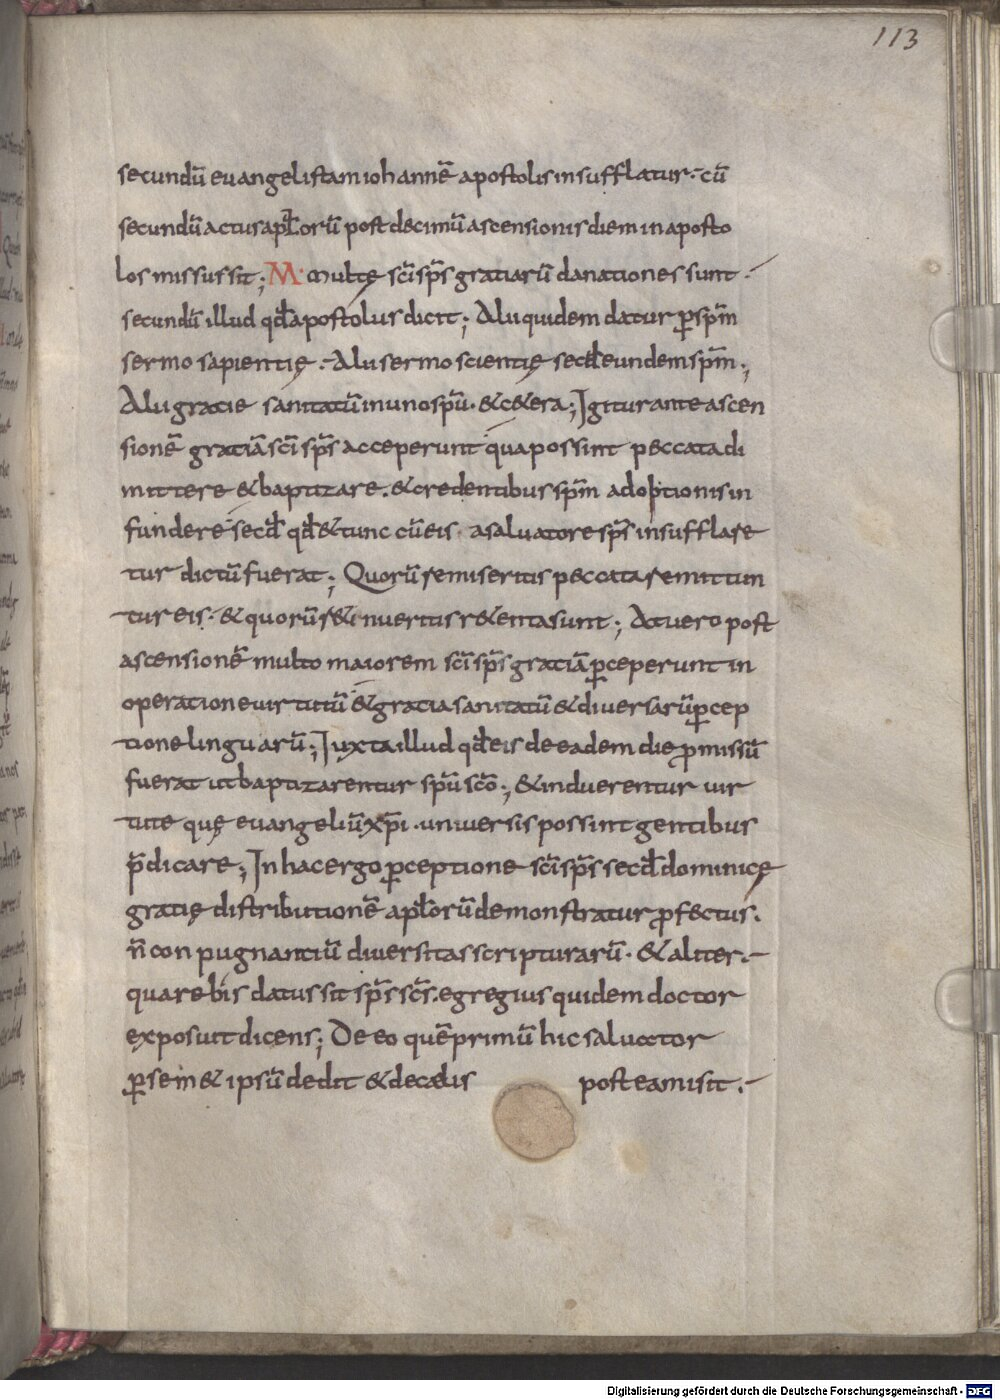 113
secundū evangelistam iohannē apostolis insufflatur. cū
secundū actus aplorū post decimū ascensionis diem in aposto
los missus sit; M. multę sc̄i sp̄s gratiarū donationes sunt.
secundū illud qđ apostolus dicit; Alii quidem datur ꝑ sp̄m
sermo sapientię. Alii sermo scientię secđ eundem sp̄m;
Alii gratię sanitatū in uno spū. &c&era; Igitur ante ascen
sionē gratiā sc̄i sp̄s acceperunt qua possint peccata di
mittere & baptizare. & credentibus sp̄m adoptionis in
fundere secđ qđ & tunc cū eis a salvatore sp̄s insufflare
tur dictū fuerat; Quorū remiseritis peccata remittun
tur eis. & quorū r&inueritis r&enta sunt; At uero post
ascensionē multo maiorem sc̄i sp̄s gratiā ꝑceperunt in
operatione uirtutū & gratia sanitatū & diversarū ꝑcep
tione linguarū; Iuxta illud qđ eis de eadem die ꝓmissū
fuerat ut baptizarentur spū sc̄o; & induerentur uir
tute quę evangeliū xp̄i. universis possint gentibus
p̄dicare; In hac ergo ꝑceptione sc̄i sp̄s secđ dominicę
gratię distributionē aplorū demonstratur ꝓfectus.
n̄ conpugnantiū diversitas scripturarū. & aliter.
quare bis datus sit sp̄s sc̄s. egregius quidem doctor
exposuit dicens; De eo quē primū hic salvator
ꝑ sem&ipsū dedit & de cælis postea misit.
Digitalisierung gefördert durch die Deutsche Forschungsgemeinschaft - DFG